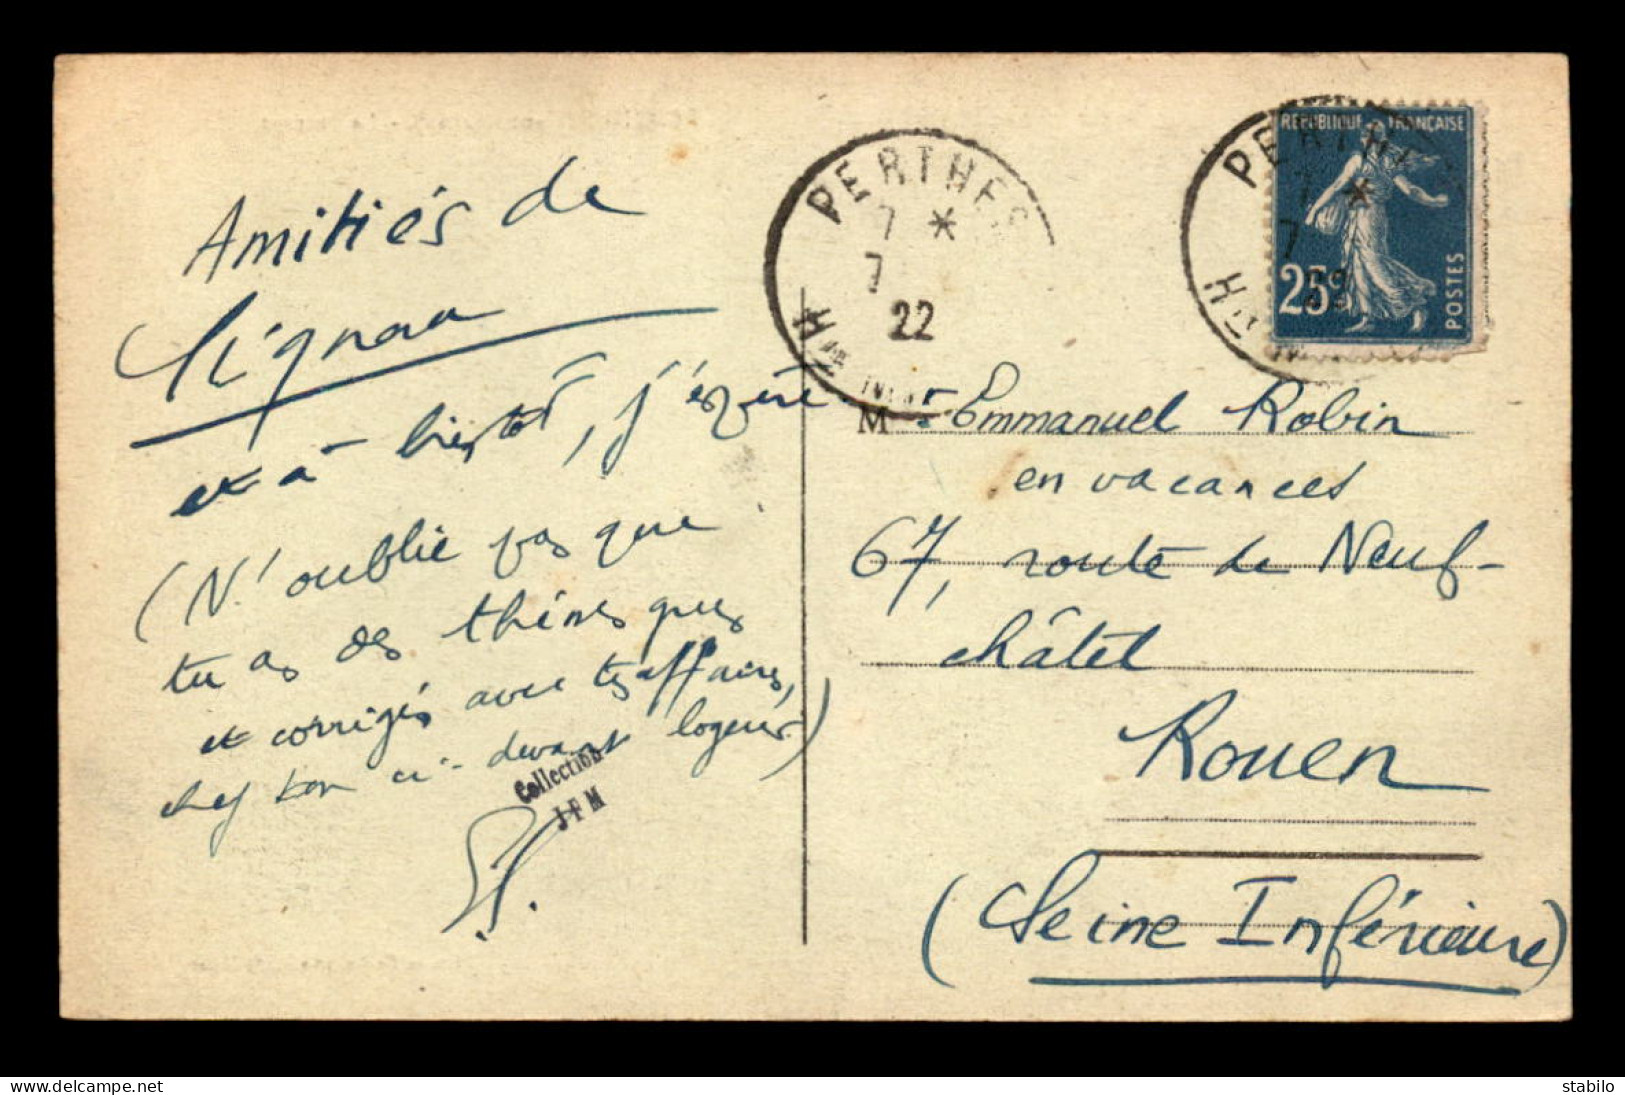 Amitiés de
et à bientôt, j'espère
(N'oublie pas que
tu as des thèmes grecs
et corrigés avec tes affaires,
chez ton ci-devant logeur)
Collection
JFM
PERTHES
7 *
7
22
Hte
PERTHES
7 *
7
22
Hte
REPUBLIQUE FRANÇAISE
25c
POSTES
Mr Emmanuel Robin
en vacances
67, route de Neuf-
châtel
Rouen
(Seine Inférieure)
www.delcampe.net
stabilo